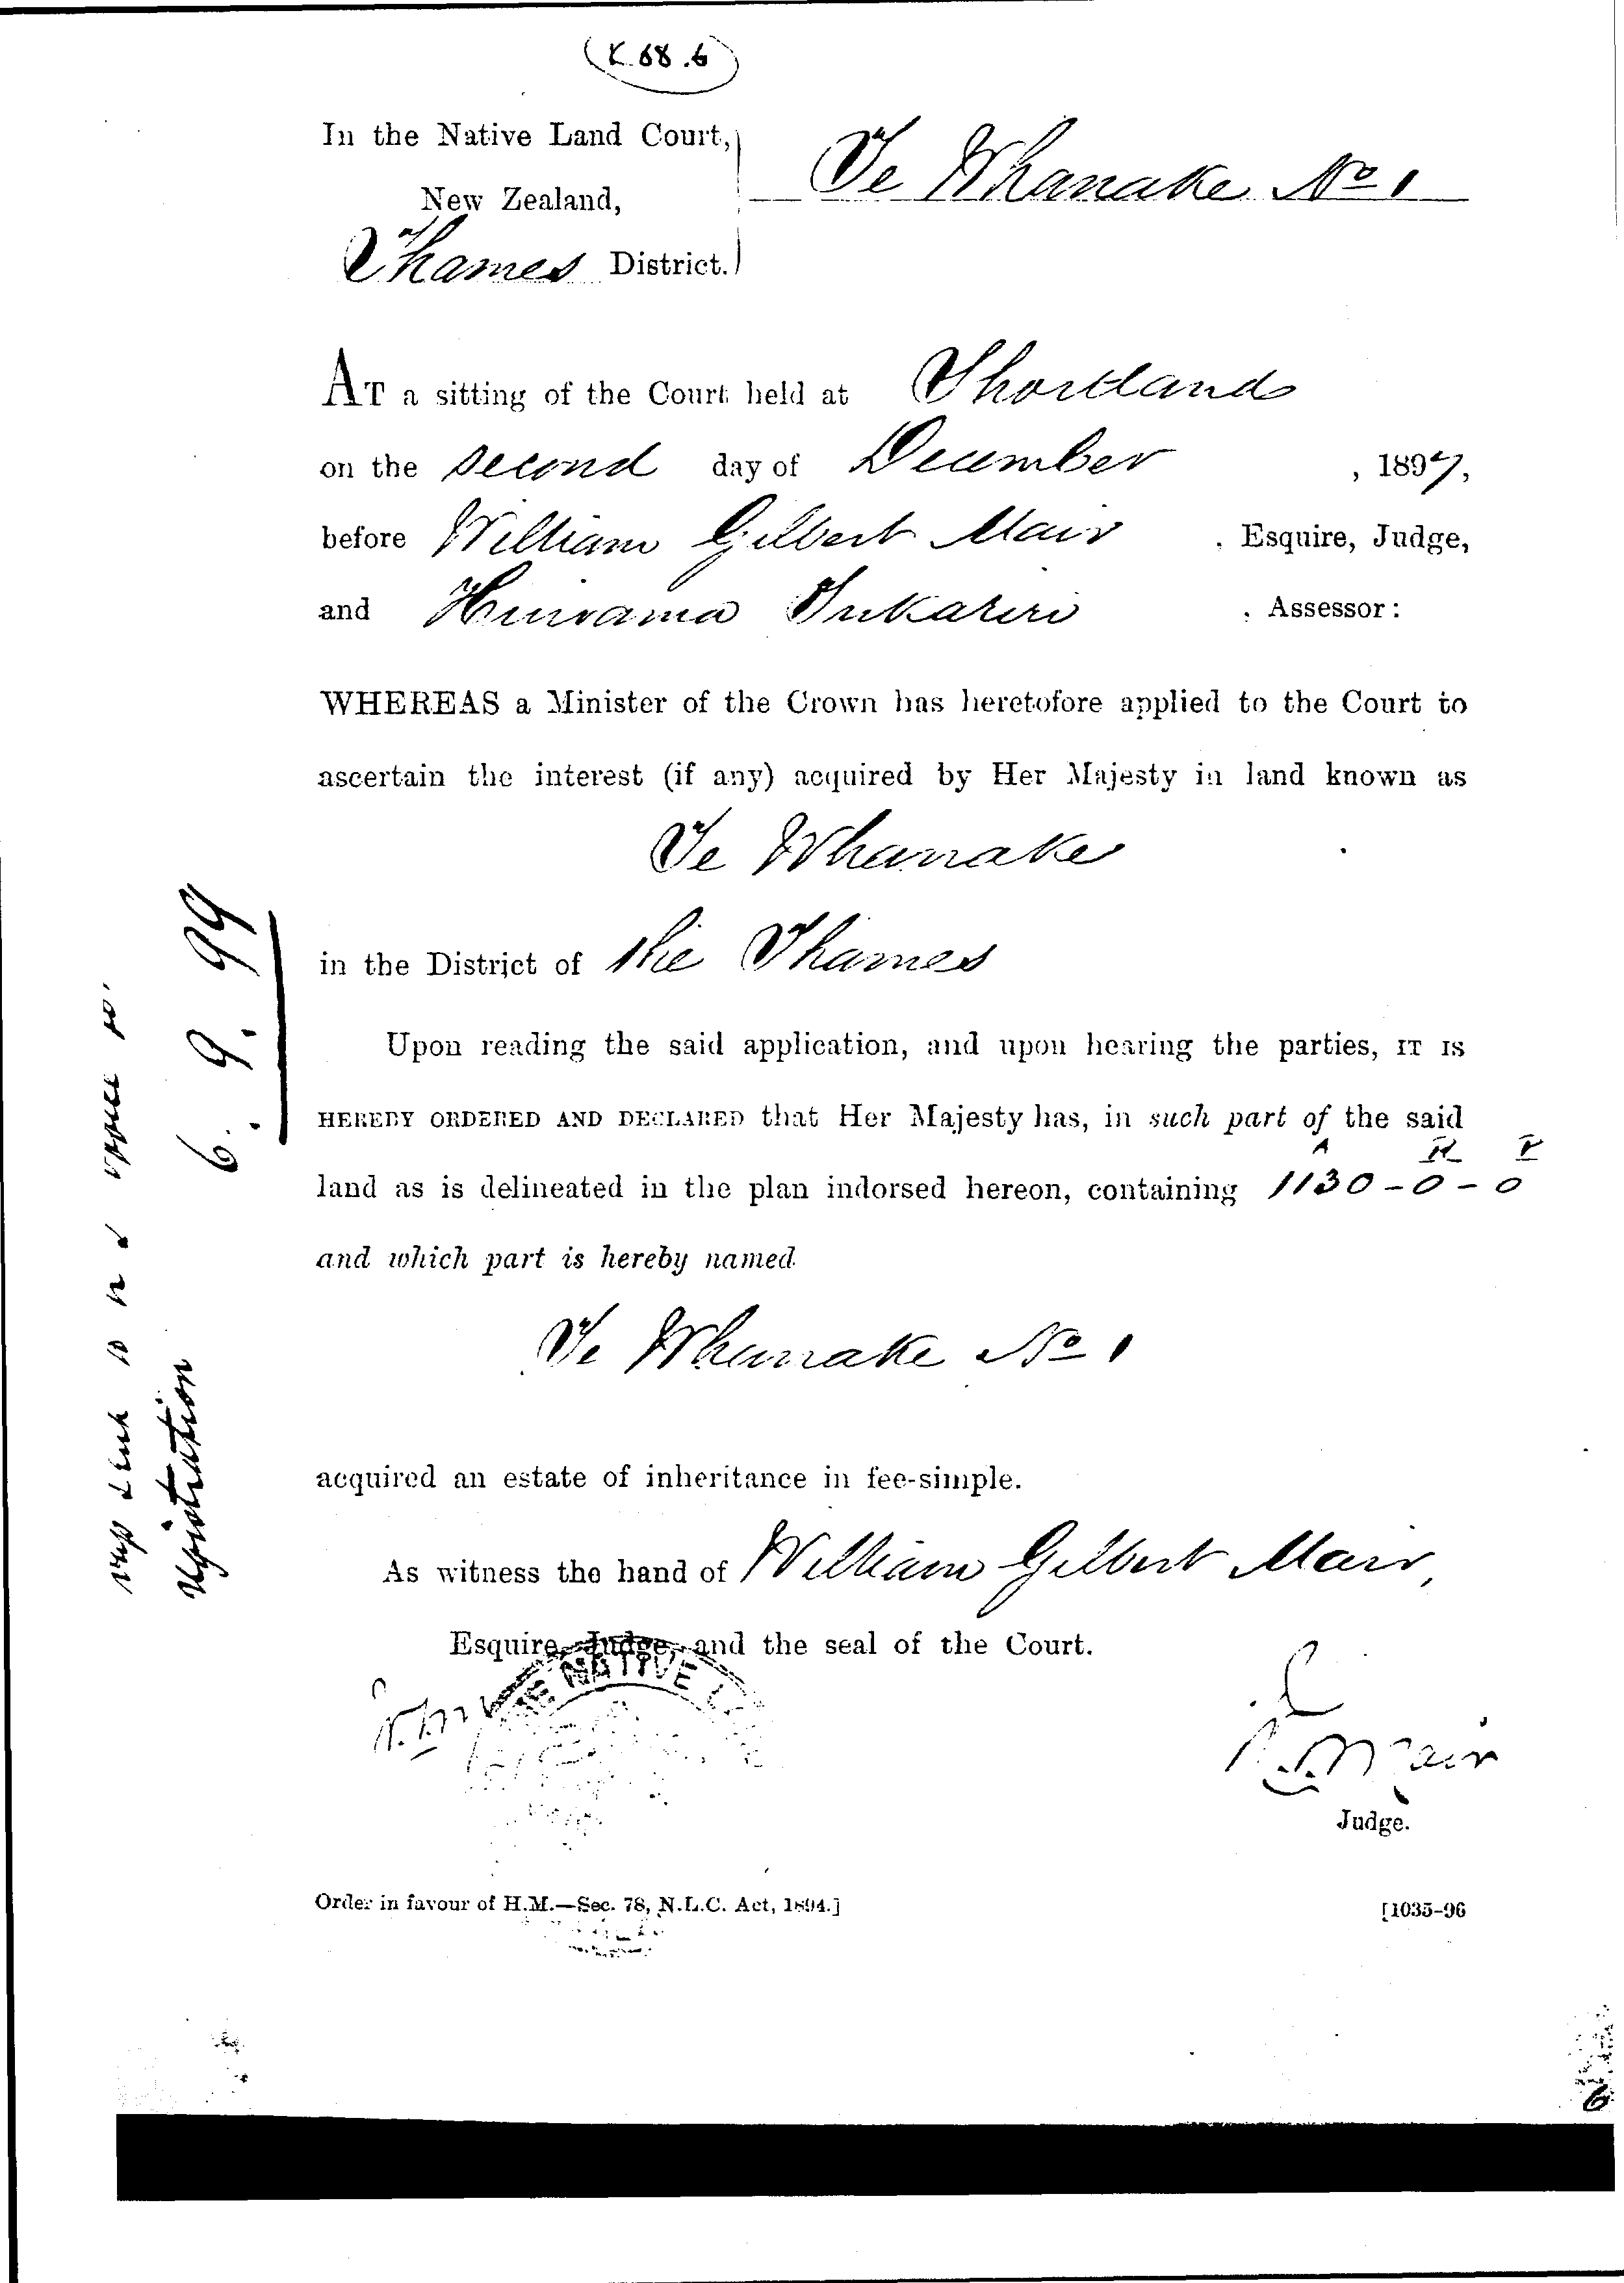 K. 68. 6
In the Native Land Court,
New Zealand,
Thames District.
Te Whanake No 1
AT a sitting of the Court held at Shortland
on the second day of December , 1897,
before William Gilbert Mair , Esquire, Judge,
and , Assessor:
WHEREAS a Minister of the Crown has heretofore applied to the Court to
ascertain the interest (if any) acquired by Her Majesty in land known as
Te Whanake
in the District of the Thames
Upon reading the said application, and upon hearing the parties, IT IS
HEREBY ORDERED AND DECLARED that Her Majesty has, in such part of the said
A R P
land as is delineated in the plan indorsed hereon, containing 1130-0-0
and which part is hereby named
Te Whanake No 1
acquired an estate of inheritance in fee-simple.
As witness the hand of William Gilbert Mair,
Esquire, Judge, and the seal of the Court.
NATIVE
Mair
Judge.
Order in favour of H.M.—Sec. 78, N.L.C. Act, 1894.]
[1035-96
registration
6. 9. 99